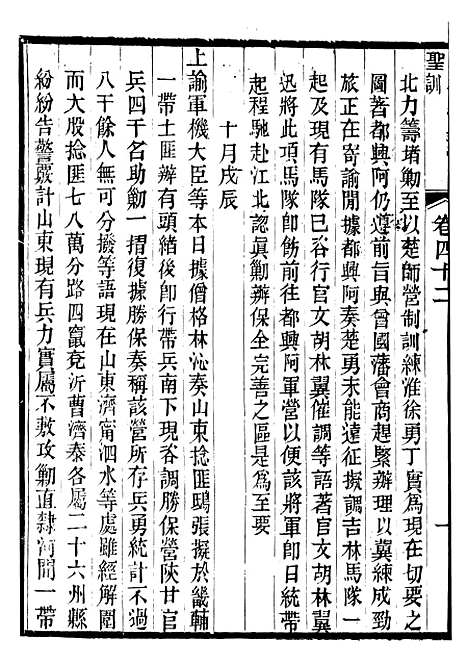 聖訓
卷四十二
一
北力籌堵勦至以楚師營制訓練淮徐勇丁實為現在切要之
圖著都興阿仍遵前旨與曾國藩會商趕緊辦理以冀練成勁
旅正在寄諭閒據都興阿奏楚勇未能遠征擬調吉林馬隊一
起及現有馬隊已咨行官文胡林翼催調等語著官文胡林翼
迅將此項馬隊卽飭前往都興阿軍營以便該將軍卽日統帶
起程馳赴江北認眞勦辦保全完善之區是為至要
十月戊辰
上諭軍機大臣等本日據僧格林沁奏山東捻匪鴟張擬於畿輔
一帶土匪辦有頭緒後卽行帶兵南下現咨調勝保營陝甘官
兵四千名助勦一摺復據勝保奏稱該營所存兵勇統計不過
八千餘人無可分撥等語現在山東濟甯泗水等處雖經解圍
而大股捻匪七八萬分路四竄兗沂曹濟泰各屬二十六州縣
紛紛告警嚴計山東現有兵力實屬不敷攻勦直隸河閒一帶